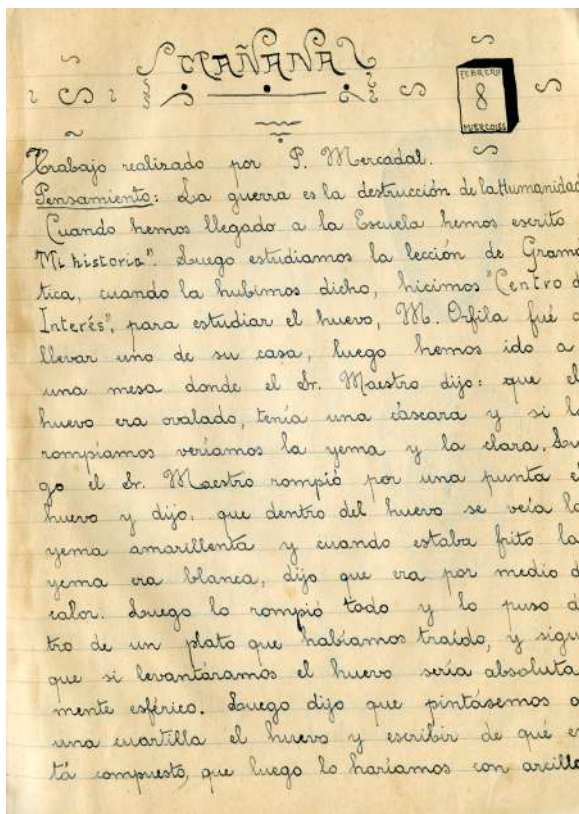 MAÑANA
FEBRERO
8
MIERCOLES
Trabajo realizado por P. Mercadal.
Pensamiento: La guerra es la destrucción de la Humanidad
Cuando hemos llegado a la Escuela hemos escrito
"Mi historia". Luego estudiamos la lección de Gramá
tica, cuando la hubimos dicho, hicimos "Centro d
Interés", para estudiar el huevo, M. Orfila fué a
llevar uno de su casa, luego hemos ido a
una mesa donde el Sr. Maestro dijo: que el
huevo era ovalado, tenía una cáscara y si lo
rompíamos veríamos la yema y la clara. Lue
go el Sr. Maestro rompió por una punta e
huevo y dijo, que dentro del huevo se veía la
yema amarillenta y cuando estaba frito la
yema era blanca, dijo que era por medio d
calor. Luego lo rompió todo y lo puso d
tro de un plato que habíamos traído, y sigu
que si levantáramos el huevo sería absoluta
mente esférico. Luego dijo que pintásemos a
una cuartilla el huevo y escribir de qué e
tá compuesto, que luego lo haríamos con arcilla